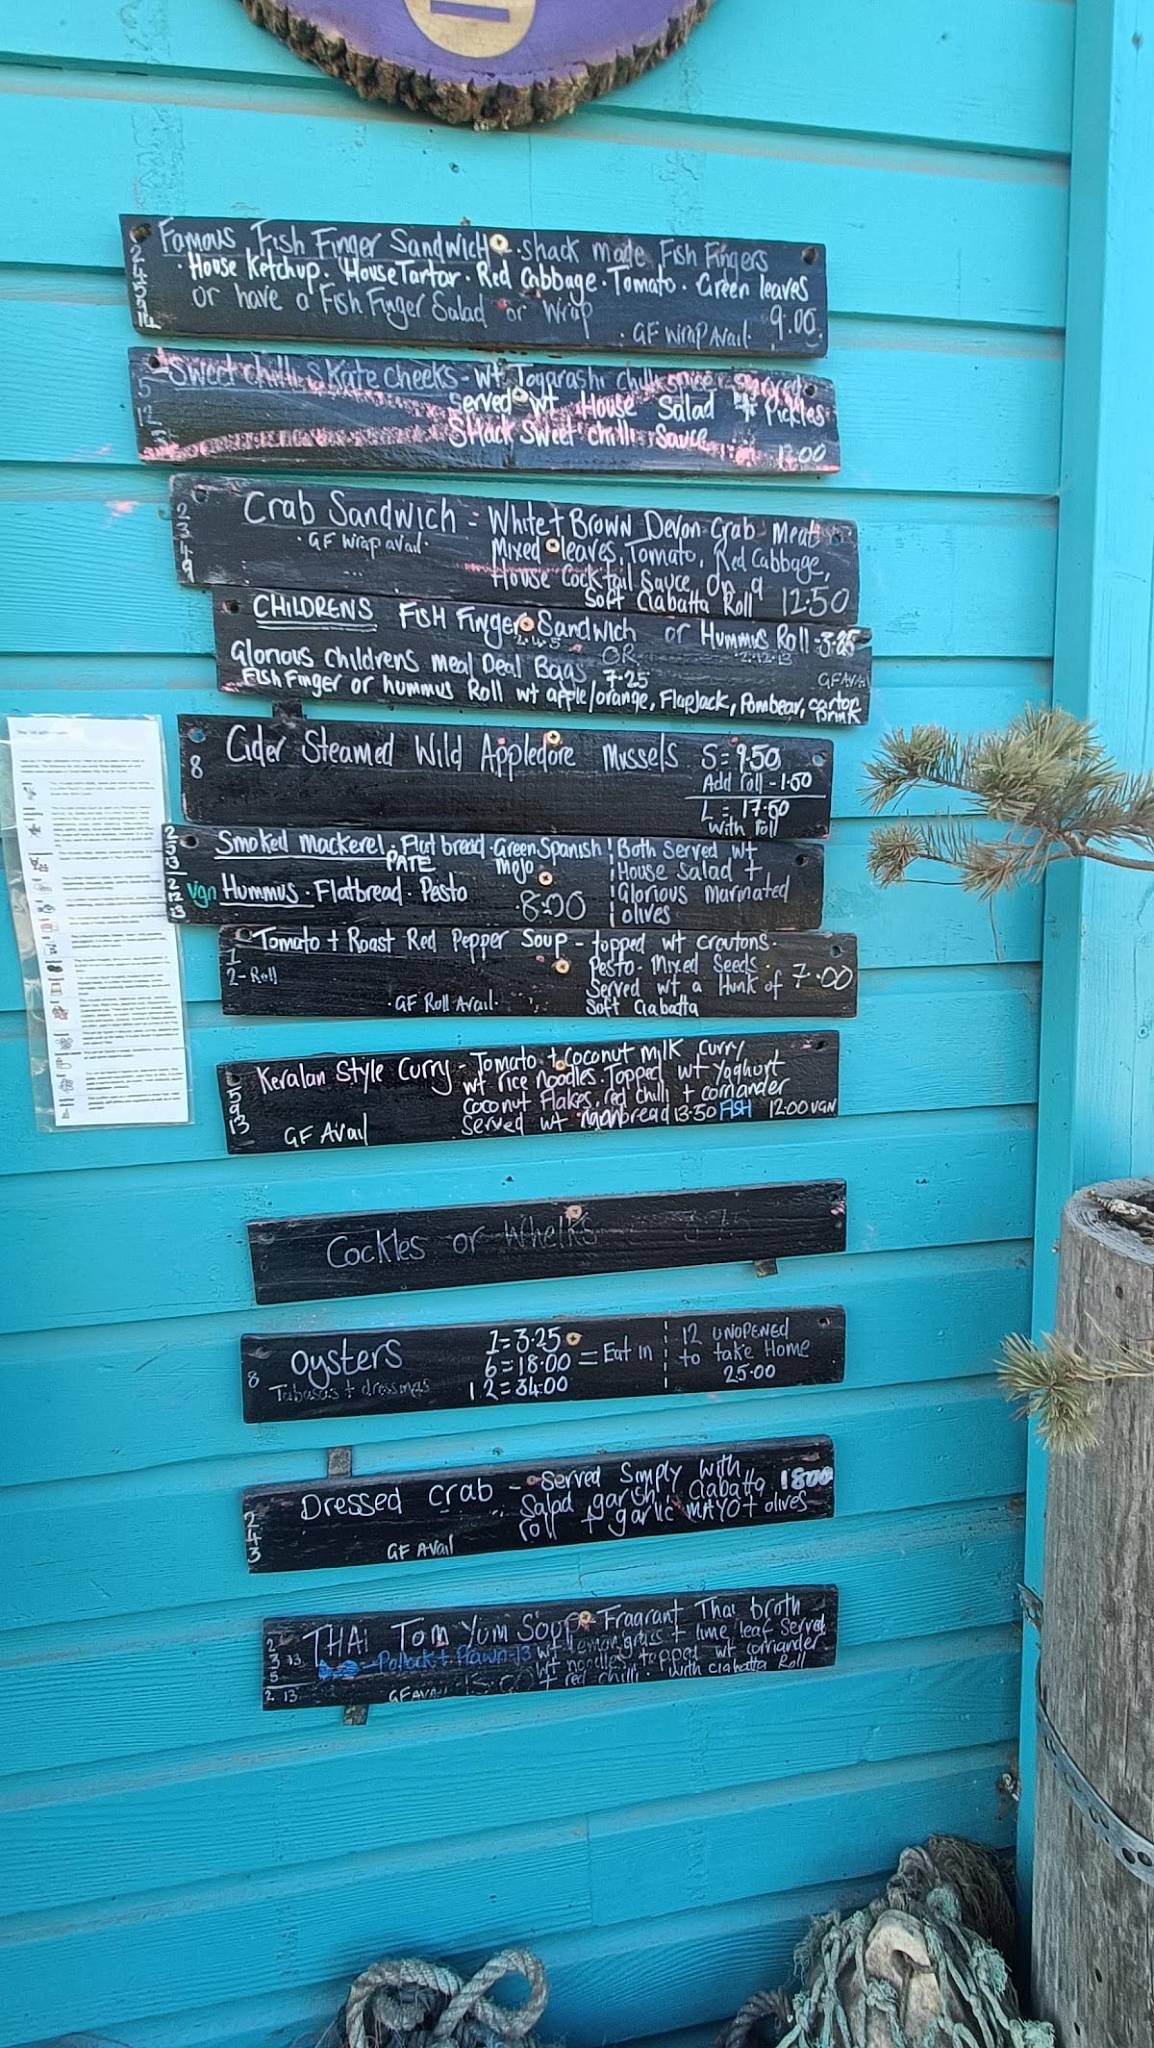 Famous Fish Finger Sandwich · Shack made Fish Fingers
· House Ketchup · House Tartar · Red Cabbage · Tomato · Green leaves
or have a Fish Finger Salad or Wrap
· GF Wrap Avail · 9.00
2
4
5
14
Sweet chilli Skate cheeks - wt Togarashi chilli spice
Served wt House Salad + Pickles
Shack Sweet chilli Sauce
12.00
5
12
Crab Sandwich = White + Brown Devon Crab Meat
· GF Wrap avail · Mixed leaves, Tomato, Red Cabbage,
House Cocktail Sauce on a
Soft Ciabatta Roll 12.50
2
3
4
9
CHILDRENS Fish Finger Sandwich or Hummus Roll - 3.25
2.4.5 OR 2.12.13
Glorious childrens meal Deal Bags 7.25 GF Avail
Fish Finger or hummus Roll wt apple/orange, Flapjack, Pombear, carton
Drink
8 Cider Steamed Wild Appledore Mussels S = 9.50
Add roll - 1.50
L = 17.50
with roll
Smoked Mackerel · Flat bread · Green Spanish Both Served wt
PATE Mojo House Salad +
vgn Hummus · Flatbread · Pesto Glorious Marinated
8.00 olives
2
5
3
2
12
13
Tomato + Roast Red Pepper Soup - topped wt croutons ·
1 Pesto · Mixed Seeds ·
2 - Roll Served wt a Hunk of 7.00
· GF Roll Avail · Soft Ciabatta
Keralan Style Curry - Tomato + Coconut milk curry
wt rice noodles. Topped wt yoghurt
Coconut Flakes, red chilli + corriander
GF Avail Served wt naanbread 13.50 FISH 12.00 VGN
5
9
13
Cockles or Whelks
Oysters 1 = 3.25 12 UNOPENED
8 6 = 18.00 = Eat in to take Home
Tabasco + dressings 12 = 34.00 25.00
Dressed Crab - Served Simply with
salad garish, Ciabatta 18.00
roll + garlic MAYO + olives
GF Avail
2
4
3
THAI Tom Yum Soup - Fragrant Thai broth
wt lemongrass + lime leaf Served
- Pollock + Prawn - 13 wt noodles, topped wt corriander
GF Avail + red chilli · with ciabatta Roll
2
3 13
5
2 13